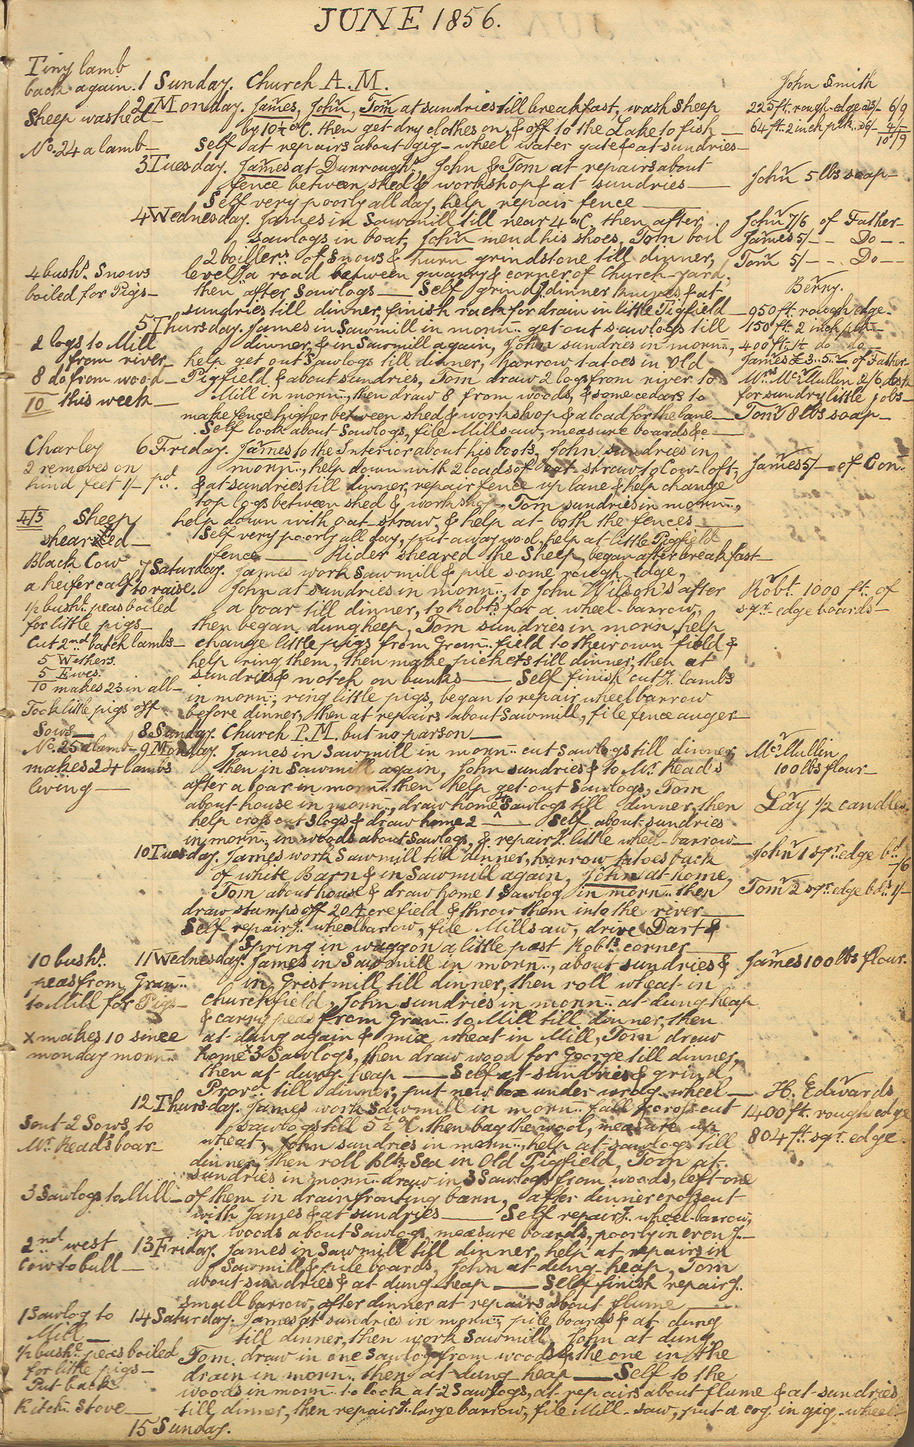 JUNE 1856.
Tiny lamb
back again. 1 Sunday. Church A.M. John Smith
Sheep washed 2 Monday. James, John, Tom at sundries till breakfast, wash Sheep 225 ft. rough edge 6/9
by 10½ oC. then get dry clothes on, & off to the Lake to fish — 64 ft. 2 inch plk. 10/9
No. 24 a lamb — Self at repairs about gig-wheel water gate & at sundries —
3 Tuesday. James at Durrough's, John & Tom at repairs about
fence between shed & workshop & at sundries — John 5 lbs soap —
Self very poorly all day, help repair fence —
4 Wednesday. James in Sawmill till near 4 oC. then after John 7/6 of Father —
sawlogs in boat, John mend his shoes, Tom boil James 5/ — Do —
2 boilers of Snows & turn grindstone till dinner, Tom 5/ — Do —
4 bushs. Snows level a road between quarry & corner of Church-yard,
boiled for Pigs — then after Sawlogs — Self grind dinner knives & at Berry.
sundries till dinner, finish rack for draw in little Pigfield — 950 ft. rough edge —
5 Thursday. James in Sawmill in morn.. get out sawlogs till 150 ft. 2 inch plk —
2 logs to Mill dinner, & in Sawmill again, John sundries in morn.., 400 ft. 1¼ do do —
from river help get out Sawlogs till dinner, harrow tatoes in Old James of Father —
8 do from wood — Pigfield & about sundries, Tom draw 2 logs from river to Mrs. McMullin 2/6
10 this week — Mill in morn.., then draw 8 from woods, & some cedars to for sundry little jobs —
make fence higher between shed & workshop & a load for the lane — Tom 8 lbs soap —
Self look about Sawlogs, file Millsaw, measure boards &c —
Charley 6 Friday. James to the Interior about his boots, John sundries in
2 removes on morn.., help down with 2 loads of oat-straw to Cow loft, James 5/ — of Con..
hind feet 1/- pd. & at sundries till dinner, repair fence up lane & help change
top logs between shed & workshop, Tom sundries in morn..,
4/3 Sheep help down with oat-straw, & help at both the fences —
sheared — Self very poorly all day, put away wool, help at little Pigfield
fence — Rider sheared the Sheep, began after breakfast —
Black Cow 7 Saturday. James work Sawmill & pile some rough edge,
a heifer calf to raise. John at sundries in morn.., to John Wilson's after Robt. 1000 ft. of
½ bush. peas boiled a boar till dinner, to Robts. for a wheel-barrow, sqr. edge boards —
for little pigs — then began dungheep, Tom sundries in morn.., help
Cut 2nd batch lambs — change little pigs from Gran.. field to their own field &
5 Wethers. help ring them, then make pickets till dinner, then at
5 Ewes. sundries & notch on bunks — Self finish cutg. lambs
10 makes 23 in all — in morn.., ring little pigs, began to repair wheelbarrow
Took little pigs off before dinner, then at repairs about Sawmill, file fence auger —
Sows — 8 Sunday. Church P.M. but no parson —
No. 25 a lamb — 9 Monday. James in Sawmill in morn.. cut sawlogs till dinner McMullin
makes 24 lambs then in Sawmill again, John sundries & to Mr. Read's 100 lbs flour —
living — after a boar in morn.. then help get out Sawlogs, Tom
about house in morn.., draw home Sawlogs till dinner, then Lay ½ candles
help cross cut 3 logs & draw home 2 — Self about sundries
in morn.. in woods about Sawlogs, & repairg. little wheel-barrow —
10 Tuesday. James work Sawmill till dinner, harrow tatoes back John 1 sqr. edge bd. 1/6
of white Barn & in Sawmill again, John at home,
Tom about house & draw home 1 Sawlog in morn.. then Tom 2 sqr. edge bds. 1/
draw stumps off 20 Acre field & throw them into the river —
Self repairg. wheelbarrow, file Millsaw, drive Dart &
Spring in waggon a little past Robts. corner —
10 bushs. 11 Wednesday. James in Sawmill in morn.., about sundries & James 100 lbs flour —
peas from Gran.. in Grestmill till dinner, then roll wheat in
to Mill for Pigs — churchfield, John sundries in morn.. at dung heap
& carry peas from Gran.. to Mill till dinner, then
x makes 10 since at dung again & mix wheat in Mill, Tom draw
monday morn.. home 3 Sawlogs, then draw wood for George till dinner,
then at dung heap — Self at sundries & grind
Prove till dinner, put new box under wag. wheel — H. Edwards
12 Thursday. James work Sawmill in morn.. fall & cross cut 1400 ft. rough edge
Sent 2 Sows to Sawlogs till 5½ oC. then bag the wool, measure up 804 ft. sqr. edge —
Mr. Read's boar wheat, John sundries in morn.. help at sawlogs till
dinner, then roll plk, Sea in Old Pigfield, Tom at
sundries in morn.. draw in 3 Sawlogs from woods, left one
3 Sawlogs to Mill — of them in drain fronting barn, after dinner cross cut
with James & at sundries — Self repairg. wheel-barrow,
in woods about Sawlogs, measure boards, poorly in eveng. —
2nd west 13 Friday. James in Sawmill till dinner, help at repairs in
Cow to bull — Sawmill & pile boards, John at dung-heap, Tom
about sundries & at dung-heap — Self finish repairg.
small barrow, after dinner at repairs about flume —
1 Sawlog to 14 Saturday. James at sundries in morn.., pile boards & at dung
Mill — till dinner, then work Sawmill, John at dung,
½ bush. peas boiled Tom draw in one Sawlog from woods & the one in the
for little pigs — drain in morn.. then at dung heap — Self to the
Put back woods in morn.. to look at 2 Sawlogs, at repairs about flume & at sundries
Kitchn. Stove — till dinner, then repairg. large barrow, file Mill-saw, put a cog in gig-wheel —
15 Sunday.